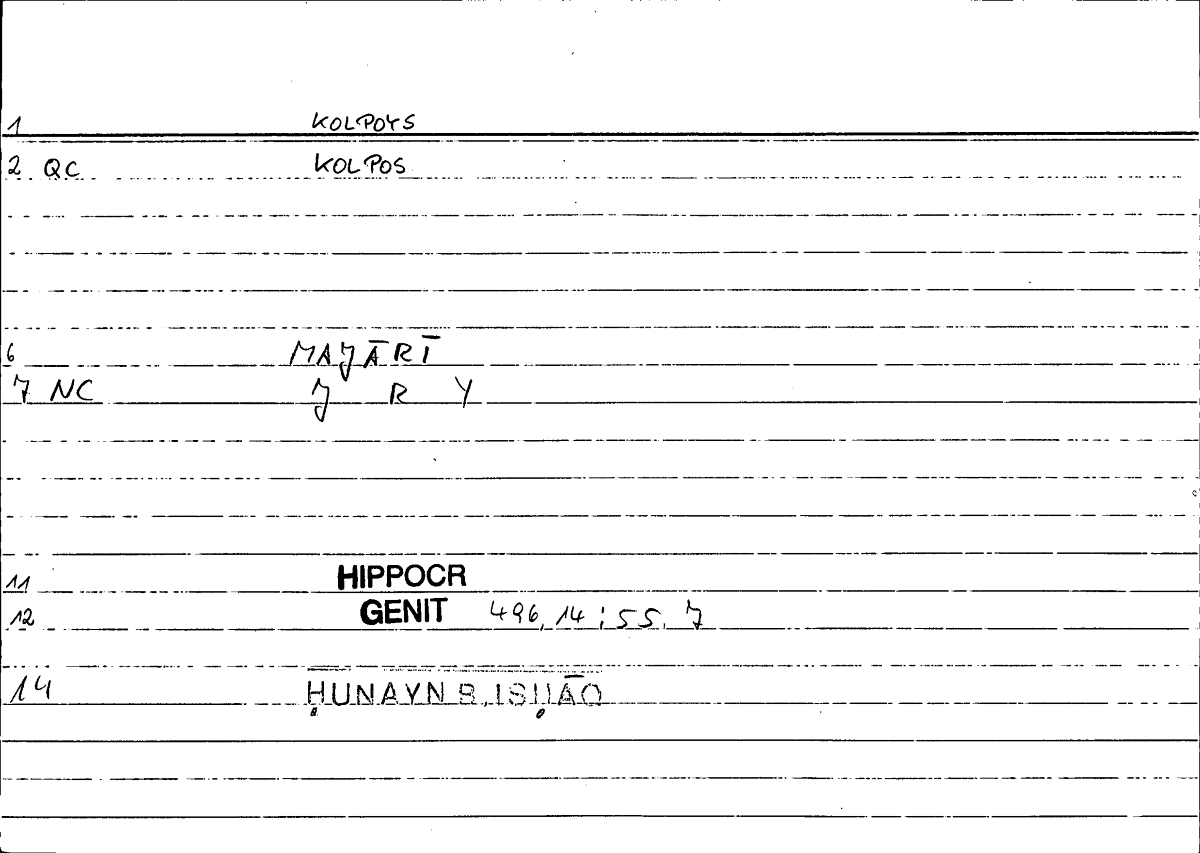 1 KOLPOYS
2 QC KOLPOS
6 MAJĀRĪ
7 NC J R Y
11 HIPPOCR
12 GENIT 496,14 ; 55.7
14 ḤUNAYN B. ISḤĀQ